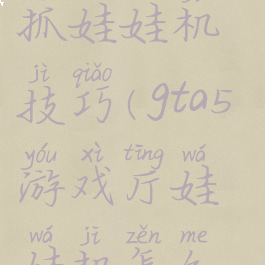 抓娃娃机
jì qiǎo
技巧(gta5
yóu xì tīng wá
游戏厅娃
wá jī zěn me
娃机怎么